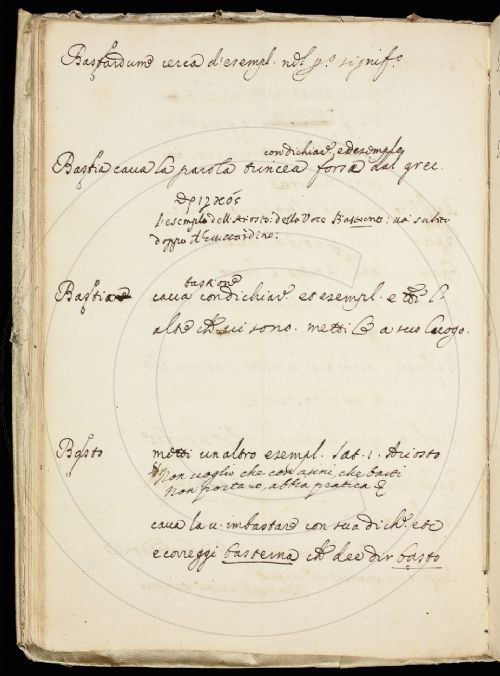 Bastardume cerca d'esempl. nel p.º signif.º
con dichiar.e ed esemplo
Bastia cava la parola trincea forse dal grec.
l'esemplo dell'Ariosto: della Voce Bastione: va subito
doppo il Guiccardino:
bastione
Bastia cava con dichiar.e et esempl. e
altre che vi sono. metti a suo luogo.
Basto metti un altro esempl. Sat. 1. Ariosto
Non voglio che con asini che basti
Non portano, abbia pratica
cava la v. imbastare con sua dich.e etc
e correggi basterna che dee dir basto